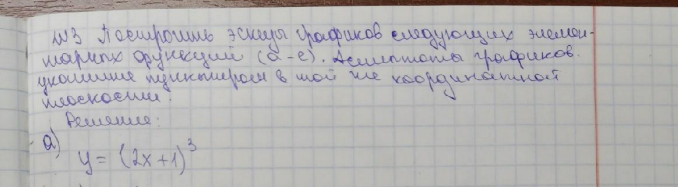 №3 Построить эскизы графиков следующих элемен-
тарных функций (а-е). Асимптоты графиков
укажите пунктиром в той же координатной
плоскости.
Решение:
а)
y = (2x+1)³